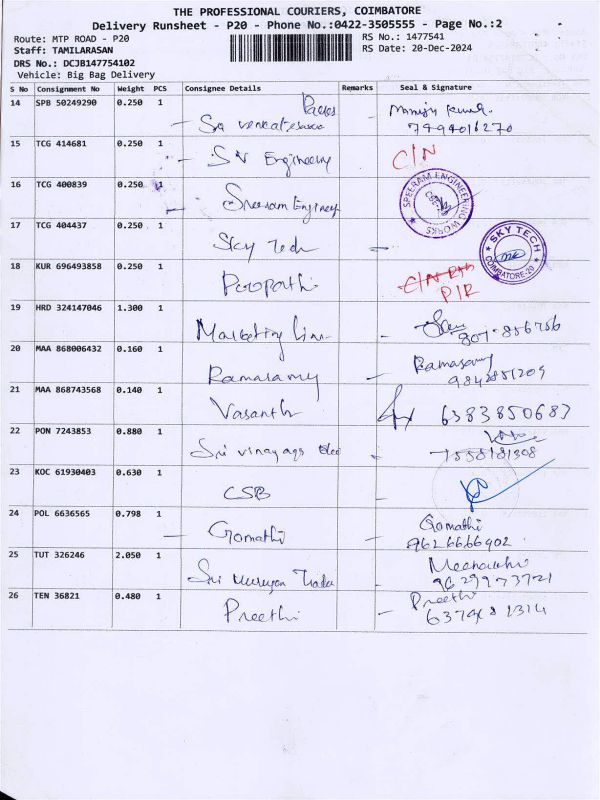 THE PROFESSIONAL COURIERS, COIMBATORE
Delivery Runsheet - P20 - Phone No.:0422-3505555 - Page No.:2
Route: MTP ROAD - P20
RS No.: 1477541
Staff: TAMILARASAN
RS Date: 20-Dec-2024
DRS No.: DCJB147754102
Vehicle: Big Bag Delivery
S No Consignment No Weight PCS Consignee Details Remarks Seal & Signature
14 SPB 50249290 0.250 1
Sri venkateswara
7994016270
15 TCG 414681 0.250 1 SN Engineering C/N
16 TCG 400839 0.250 1 Sreeram Engineer
SREERAM ENGINEERING WORKS
17 TCG 404437 0.250 1 Sky Tech
SKY TECH
COIMBATORE-20
18 KUR 696493858 0.250 1 Poopathi
P/R
19 HRD 324147046 1.300 1 Marketing
20 MAA 868006432 0.160 1 Ramasamy Ramasamy
21 MAA 868743568 0.140 1 Vasanth 6383850687
22 PON 7243853 0.880 1 Sri vinayaga
7558181308
23 KOC 61930403 0.630 1 CSB
24 POL 6636565 0.798 1 Gomathi Gomathi
9626666902
25 TUT 326246 2.050 1 Sri Murugan Trader Meenakshi
9629973721
26 TEN 36821 0.480 1 Preethi Preethi